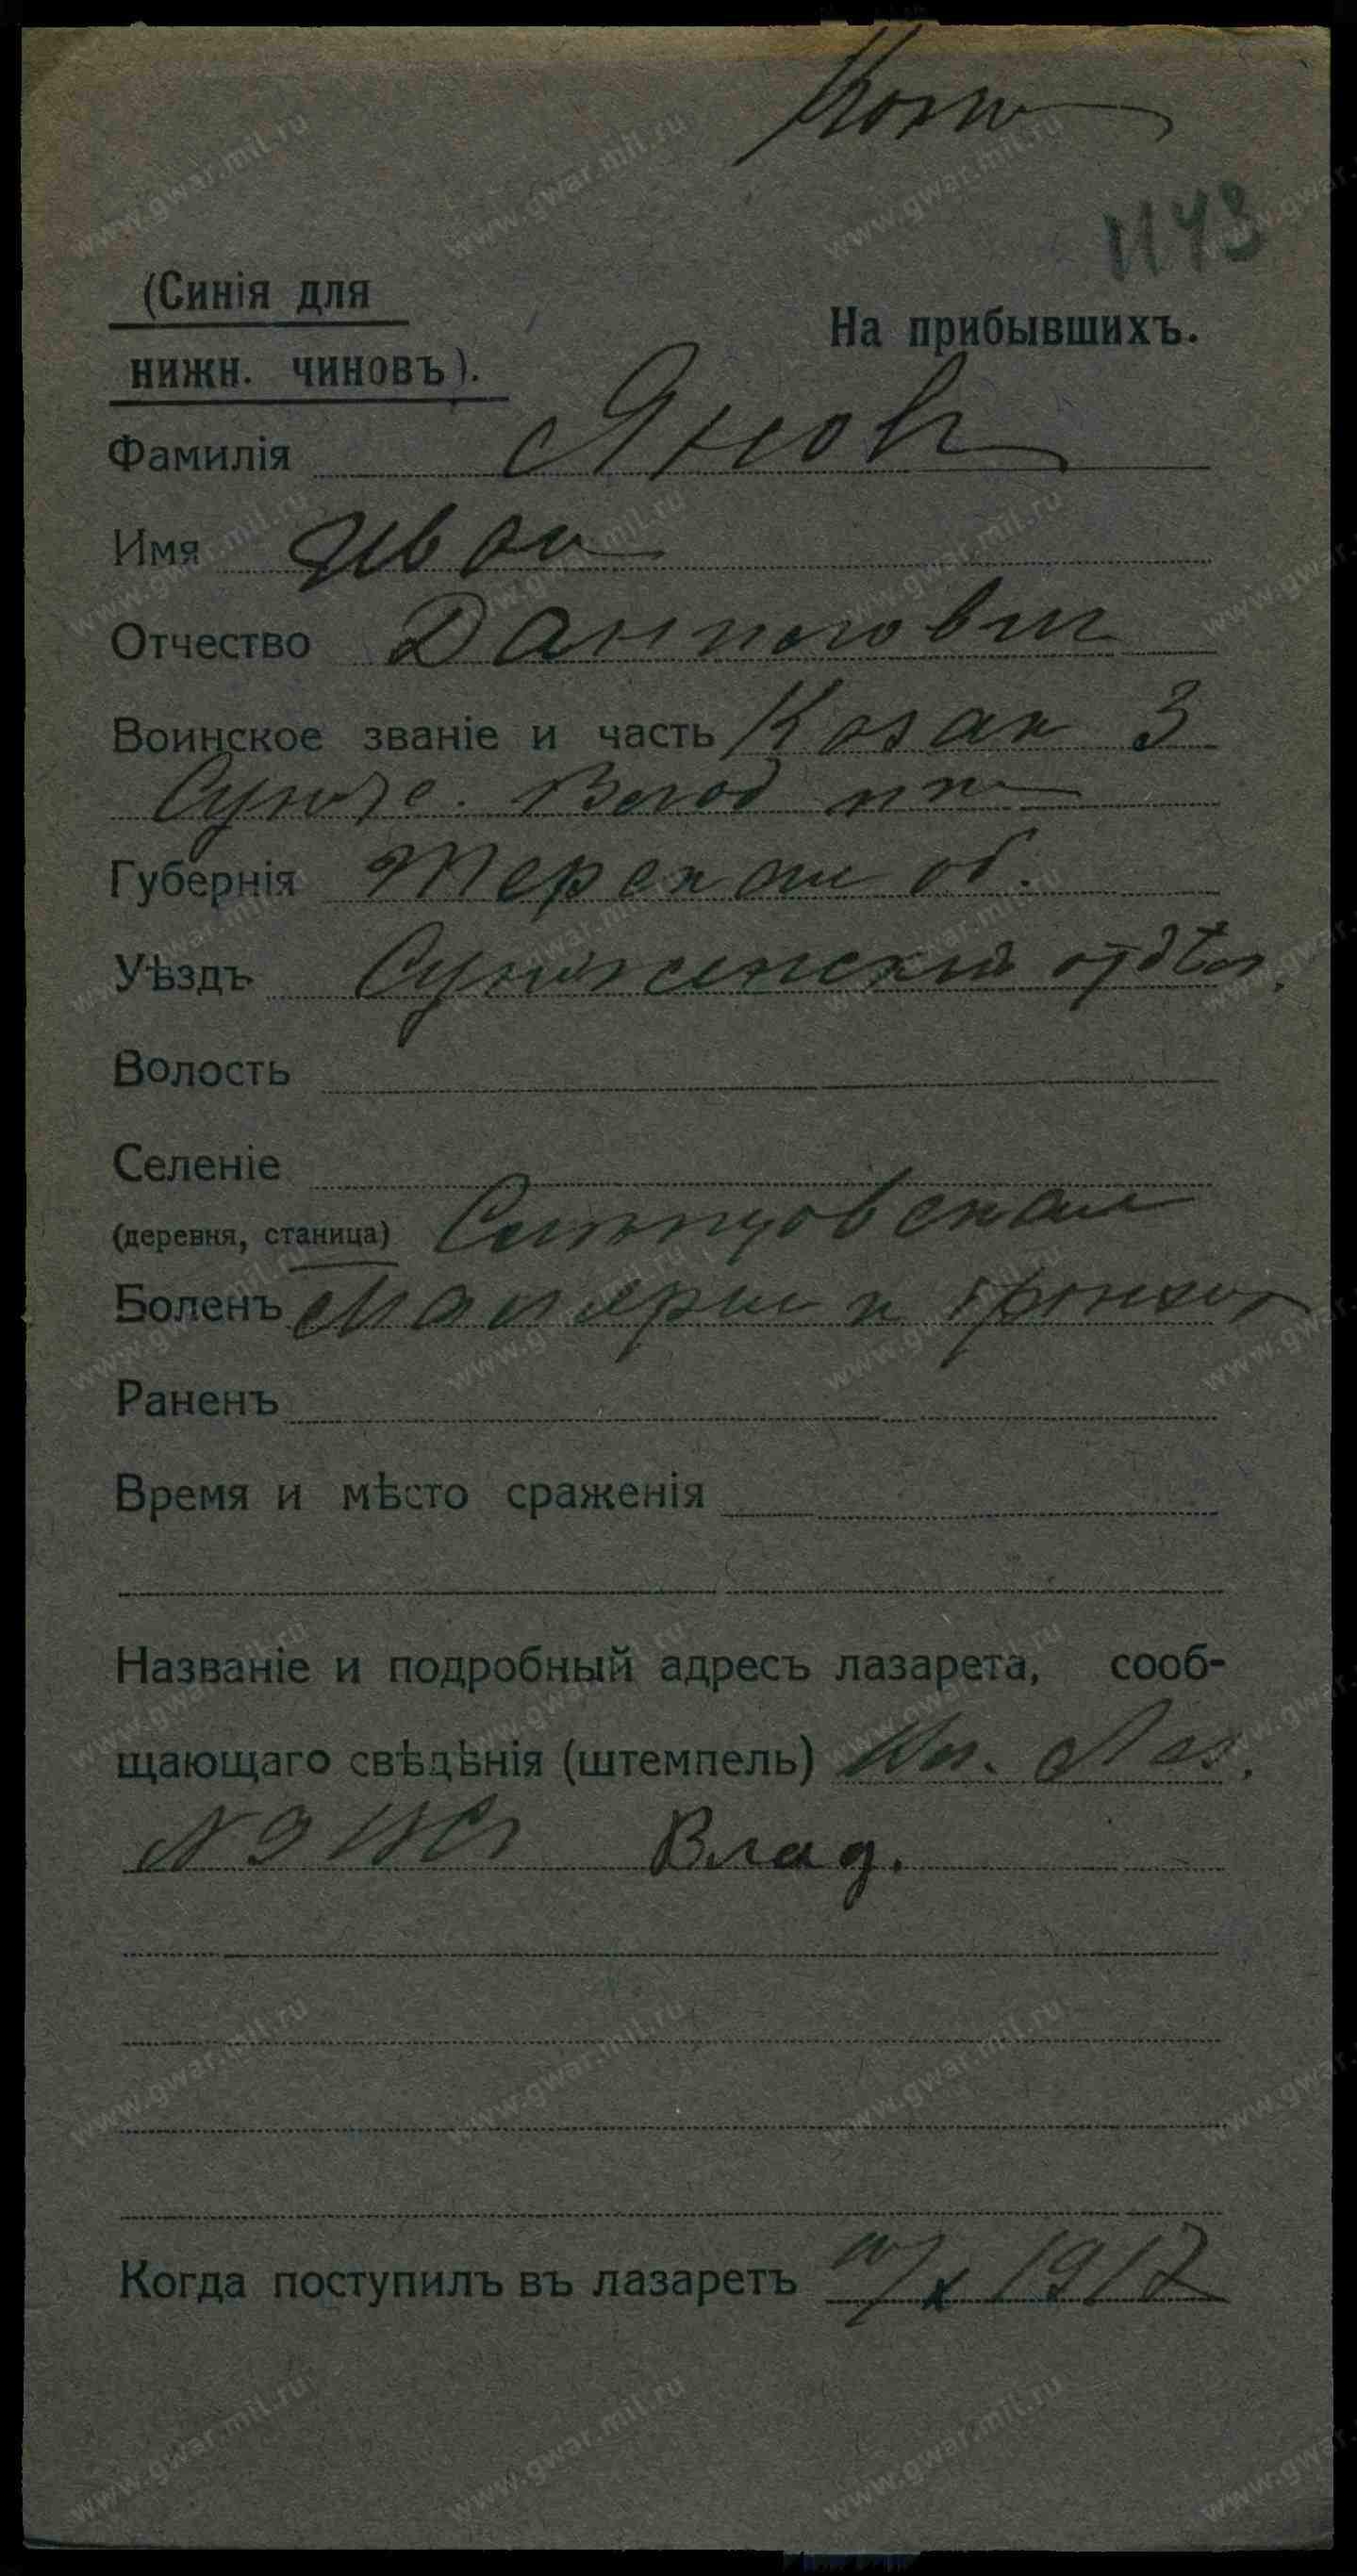 1143
(Синія для
На прибывшихъ.
нижн. чиновъ).
Фамилія Яновъ
Имя Иван
Отчество Данилович
Воинское званіе и часть Козак 3
Сунже. Влад пк
Губернія Терская об.
Уѣздъ Сунженский отдѣл.
Волость
Селеніе
(деревня, станица) Слепцовская
Боленъ Малярия и бронхит
Раненъ
Время и мѣсто сраженія
Названіе и подробный адресъ лазарета, сооб-
щающаго свѣдѣнія (штемпель) Лаз.
N 9 Влад.
Когда поступилъ въ лазаретъ /X 1917
www.gwar.mil.ru